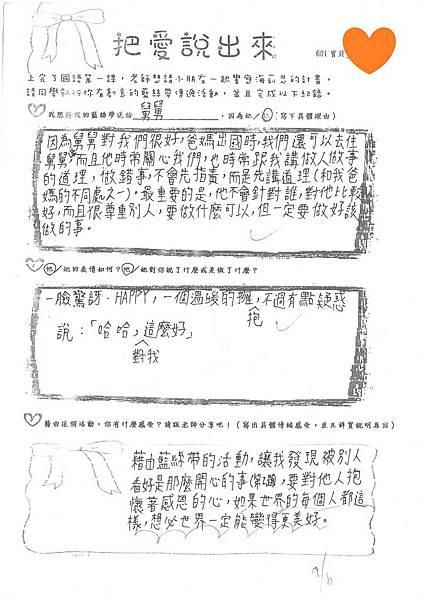 把愛說出來
601 寶貝
上完了國語第一課，老師想請小朋友一起響應海莉思的計畫，
請同學執行你有創意的藍絲帶傳遞活動，並且完成以下紀錄。
我想將我的藍絲帶送給 舅舅 ，因為她/他：(寫下具體理由)
因為舅舅對我們很好，爸媽出國時，我們還可以去住
舅舅家，而且他時常關心我們，也時常跟我講做人做事
的道理，做錯事，不會先指責，而是先講道理(和我爸
媽的不同處之一)。最重要的是，他不會針對誰，對他比較
好，而且很尊重別人，要做什麼可以，但一定要做好該
做的事。
他/她的表情如何？他/她對你說了什麼或是做了什麼？
一臉驚訝、HAPPY，一個溫暖的擁抱，不過有點疑惑
說：「哈哈，對我這麼好」
藉由這個活動，你有什麼感受？請跟老師分享吧！(寫出具體情緒感受，並且詳實說明原因)
藉由藍絲帶的活動，讓我發現被別人
看好是那麼開心的事，要對他人抱
懷著感恩的心，如果世界的每個人都這
樣，想必世界一定能變得更美好。